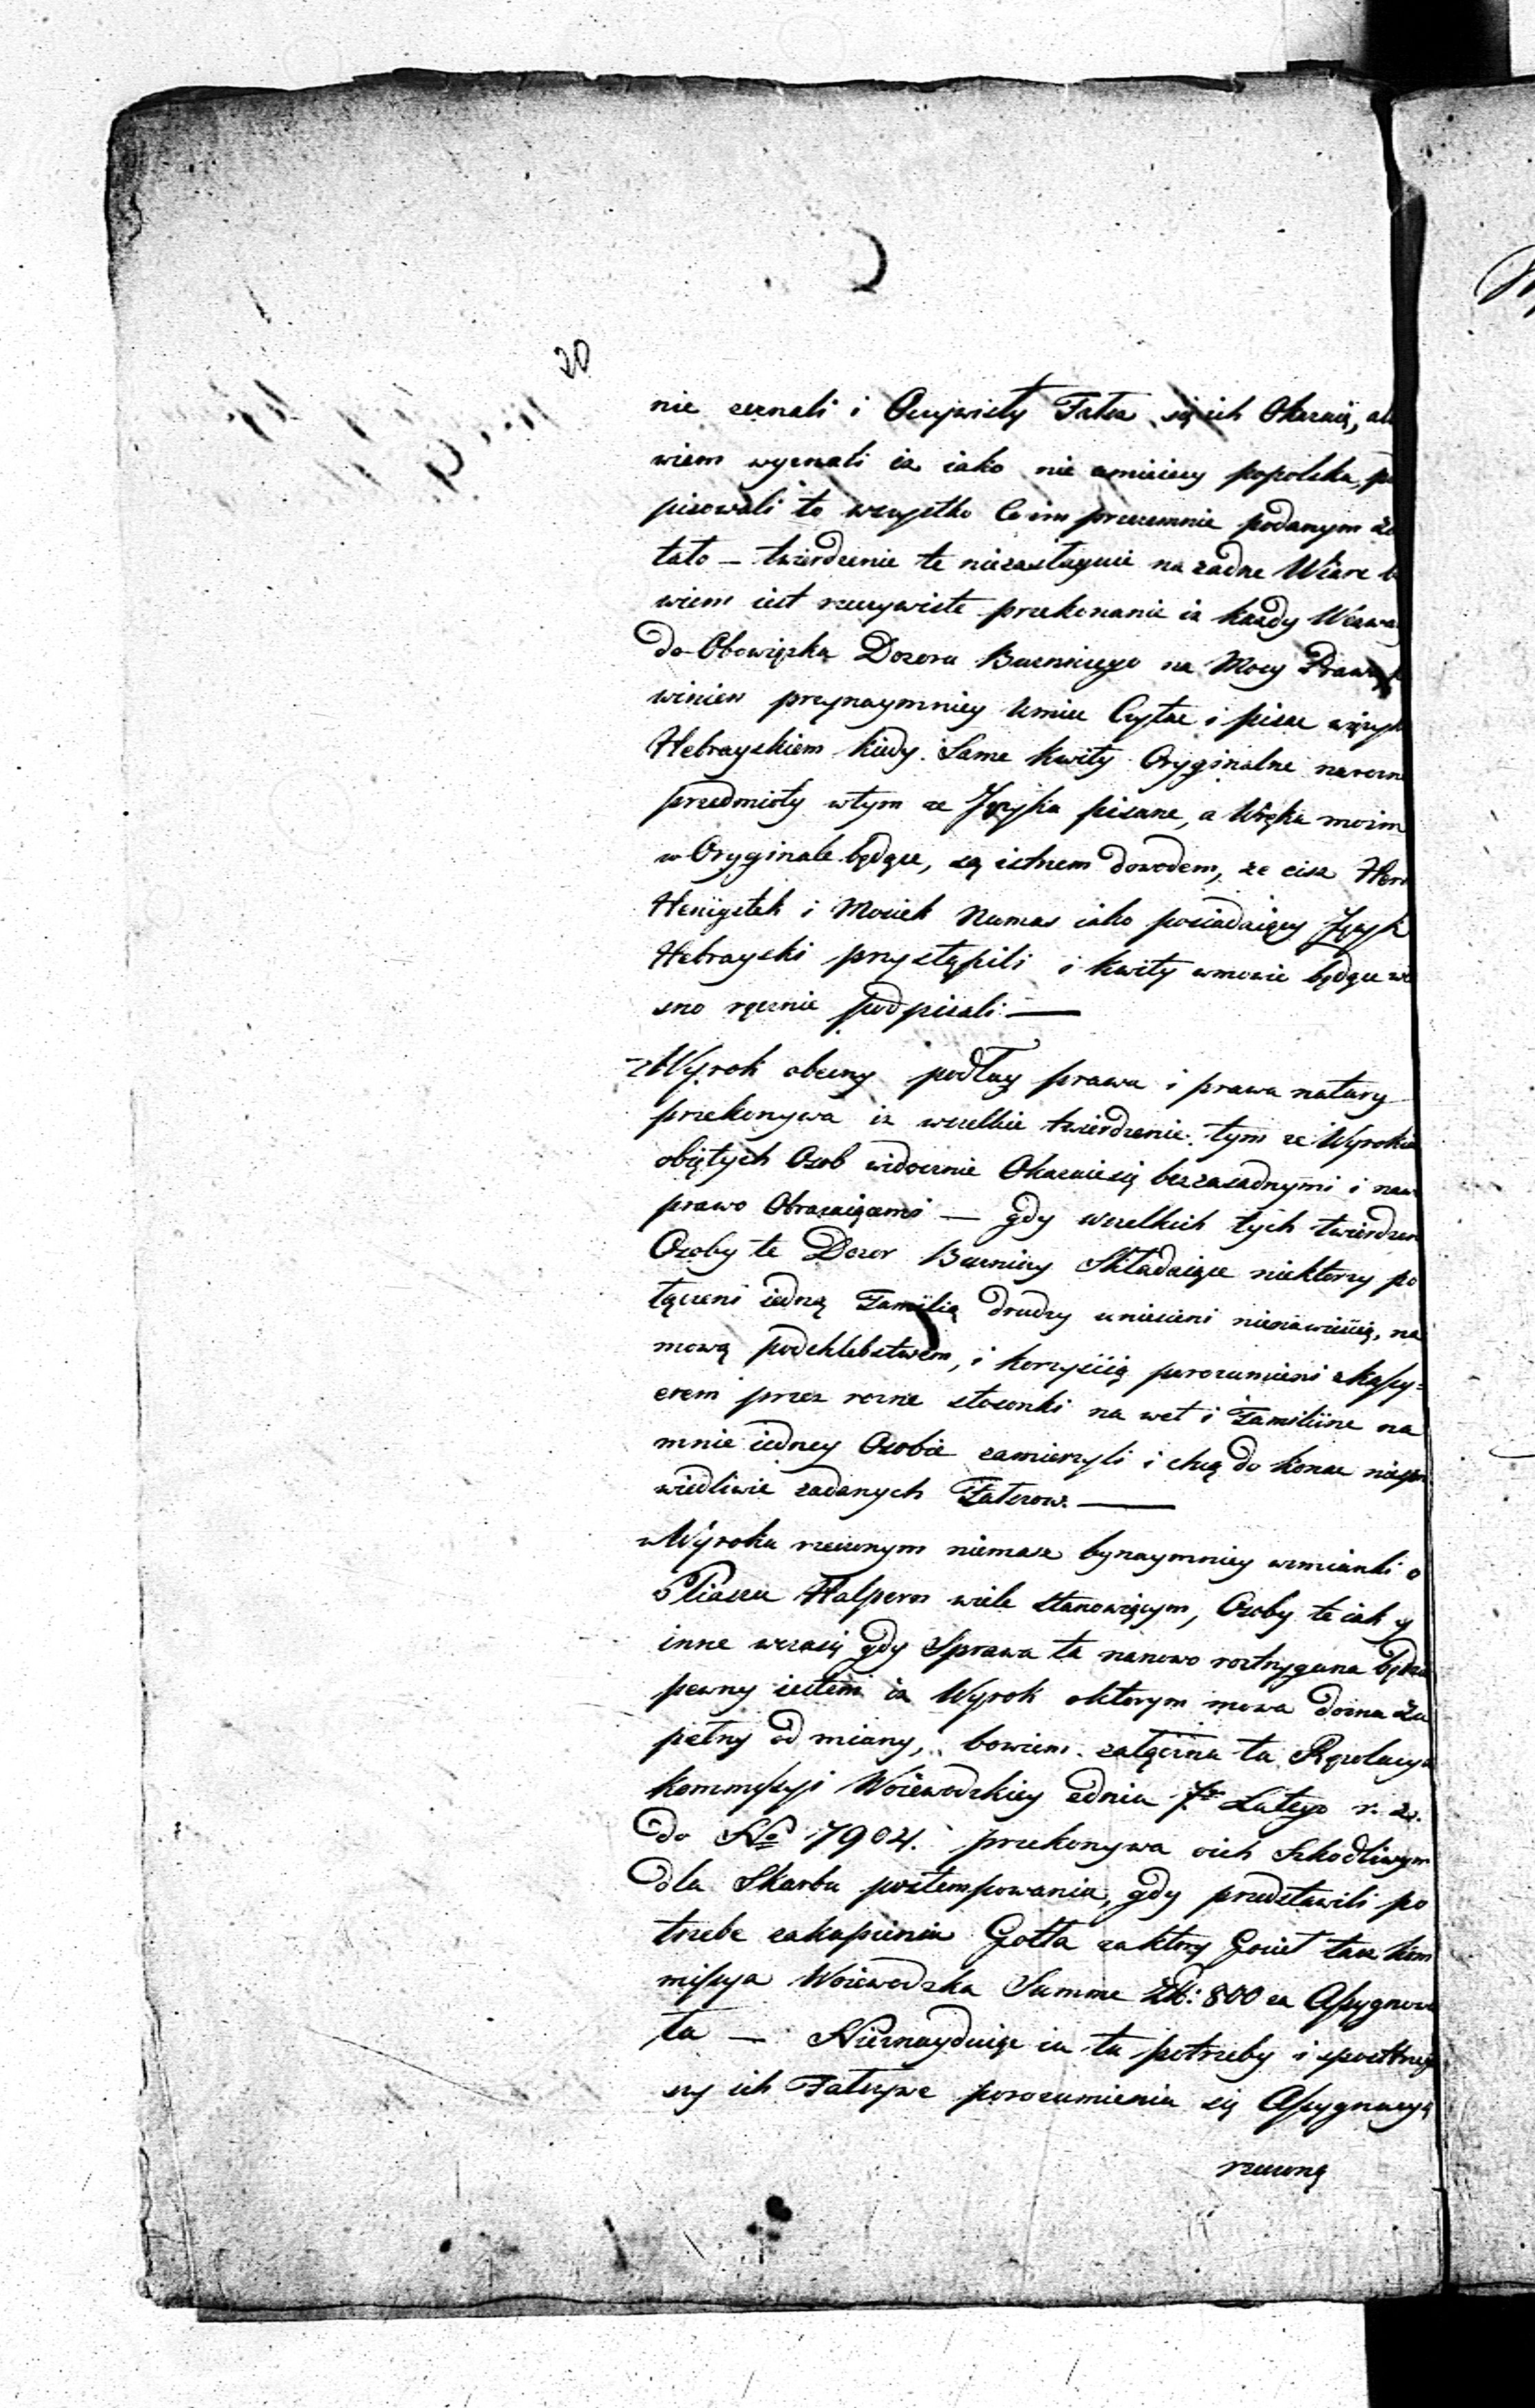 20
nie zeznali i Oczywisty Fałsz się ich Okazuię, al
wiem wyznali iz iako nie umieiący popolsku, po
pisowali to wszystko Co im przezemnie podanym zo
tało — twierdzenie te niezasługuie na zadne Wiare b
wiem iest rzeczywiste przekonanie iz kazdy Wezwa
do Obowiązku Dozoru Buzniczego na Mocy Prawa p
winien przynaymniey Umieć Czytac i pisac więzyk
Hebrayskiem kiedy Same kwity Oryginalne narozn
przedmioty wtym ze Języku pisane, a Wręku moim
w Oryginale będące, są istnem dowodem, ze cisz Hers
Henigstek i Mosiek Numas iako posiadaiący Język
Hebrayski przystąpili i kwity wmowie będące wł
sno ręcznie podpisali —
Wyrok obecny podług prawa i prawa natury
przekonywa iz wszelkie twierdzenie tym ze Wyrokiem
obiętych Osob widocznie Okazuiesię bezzasadnymi i naw
prawo Obrazaiącemi — gdy wszelkich tych twierdzen
Osoby te Dozor Buzniczy Składaiące niektorzy po
łączeni iedną Familią drudzy uniesieni nienawiścią, na
mową podchlebstwem, i korzyścią porozumieni zkassy=
erem przez rozne stosunki na wet i Familiine na
mnie iedney Osobie zamierzyli i chcą do konac niespra
wiedliwie zadanych Fałszow. —
w Wyroku rzeczonym niemasz bynaymniey wzmianki o
Eliaszu Halpern wiele stanowiącym, Osoby te iak y
inne wrazię gdy Sprawa ta nanowo roztrząsana będzie
pewny iestem iz Wyrok oktorym mowa dozna Zu
pełny od miany, bowiem załączna tu Rezolucya
kommissyi Woiewodzkiey zdnia 7go Lutego r. z.
do No 17904. przekonywa oich Szkodliwym
dla Skarbu postempowaniu, gdy przedstawili po
trzebe zakupienia Gotta zaktory Goiet taz kom
missya Woiewodzka Summe Zł: 800 za Assygnowa
ła — Nieznayduiąc iu tu potrzeby i spostrzeg
szy ich Fałszywe porozumienia się Assygnacyą
rzeczoną